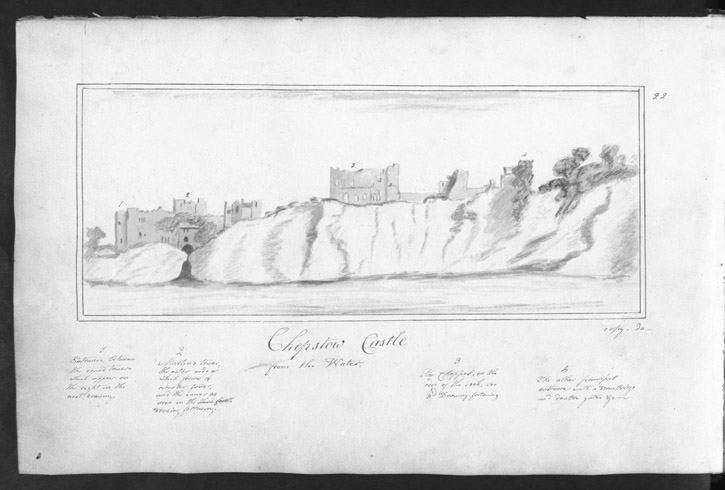 22
1
2
3
4
Chepstow Castle
from the Water
1
Entrance between
the round towers
that appear on
the right in the
next drawing.
2
the outer side of
which forms a
and the inner as
seen in the
drawing following.
3
The Chappel, on the
of the rock, see
Drawing following
4
The other principal
entrance with a drawbridge
and double gates &c